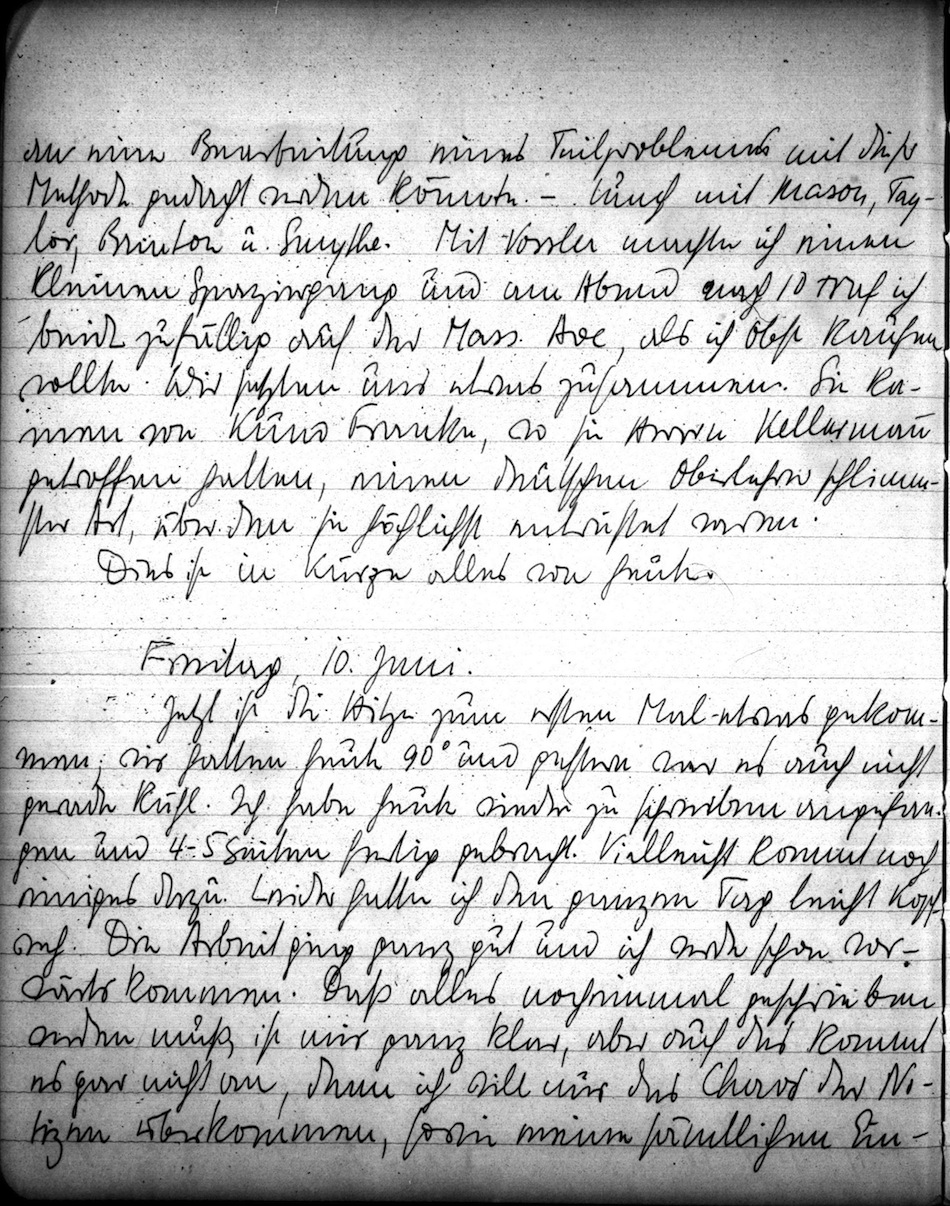 an eine Bearbeitung eines Teilproblemes mit dieser
Methode gedacht werden könnte. – Lunch mit Mason, Tay-
lor, Brinton u. Smythe. Mit Vossler machte ich einen
kleinen Spaziergang und am Abend nach 10 traf ich
beide zufällig auf der Mass. Ave, als ich Obst kaufen
wollte. Wir setzten uns etwas zusammen. Sie ka-
men von Kuno Francke, wo sie Herrn Kellerman
getroffen hatten, einen deutschen Oberlehrer schlimm-
ster Art, über den sie höchlichst entrüstet waren.
Dies ist in Kürze alles von heute.
Freitag, 10. Juni.
Jetzt ist die Hitze zum ersten Mal etwas gekom-
men; wir hatten heute 90° und gestern war es auch nicht
gerade kühl. Ich habe heute wieder zu schreiben angefan-
gen und 4-5 Seiten fertig gebracht. Vielleicht kommt noch
einiges dazu. Leider hatte ich den ganzen Tag leicht Kopf-
weh. Die Arbeit ging ganz gut und ich werde schon vor-
wärts kommen. Daß alles nocheinmal geschrieben
werden muß, ist mir ganz klar, aber auf das kommt
es gar nicht an, denn ich will nur das Chaos der No-
tizen überkommen, sowie meine sämtlichen Ein-